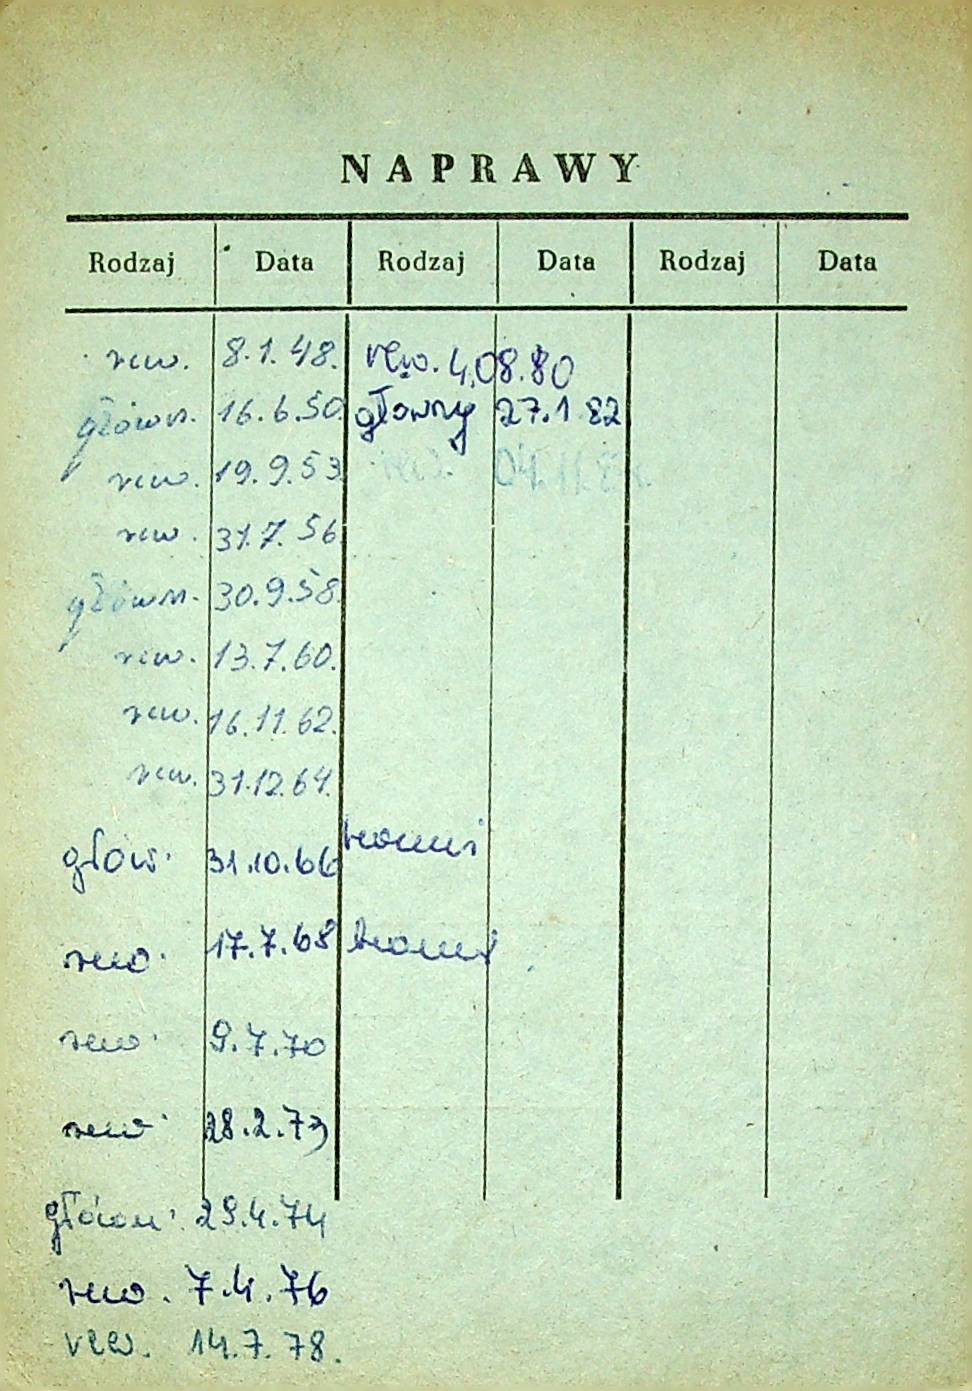 NAPRAWY
Rodzaj Data Rodzaj Data Rodzaj Data
rew. 8.1.48. rew. 4.08.80
główn. 16.6.50 główny 27.1.82
rew. 19.9.53 rew.
rew. 31.7.56
główn. 30.9.58.
rew. 13.7.60.
rew. 16.11.62.
rew. 31.12.64.
głów. 31.10.66
rew. 17.7.68
rew. 9.7.70
rew. 28.2.73
główn. 29.4.74
rew. 7.4.76
rew. 14.7.78.